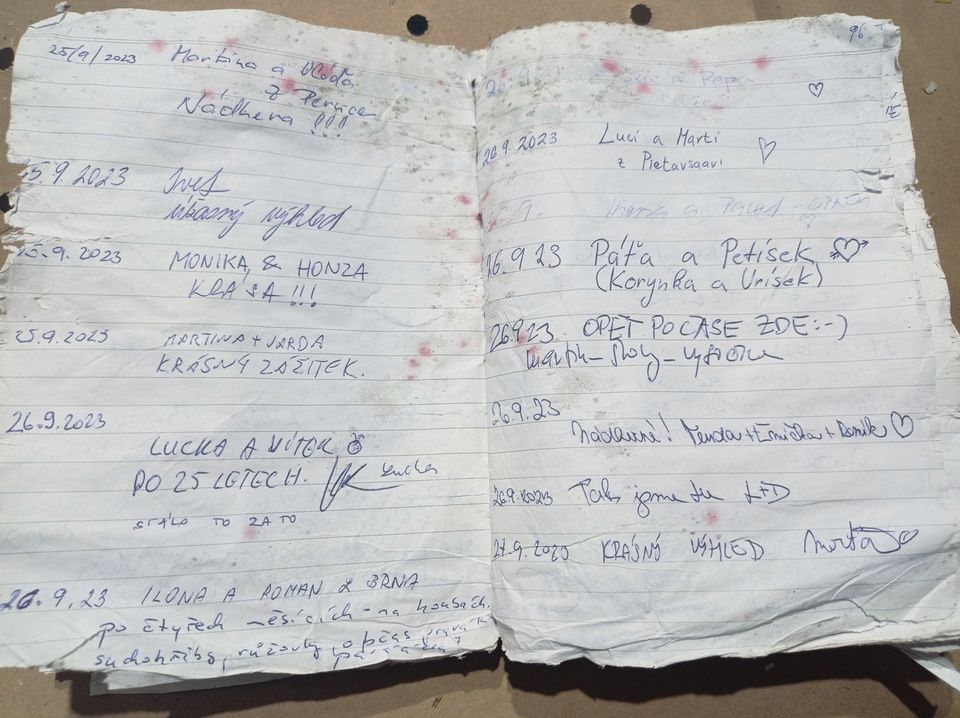 25/9/2023 Martina a Vláďa
z Peruce
Nádhera !!!
25.9.2023 Ivet
úžasný výhled
25.9.2023 MONIKA & HONZA
KRÁSA !!!
25.9.2023 MARTINA + JARDA
KRÁSNÝ ZÁŽITEK.
26.9.2023
LUCKA A VÍTEK
PO 25 LETECH. Lucka
STÁLO TO ZA TO
26.9.23 ILONA A ROMAN Z BRNA
po čtyřech měsících - na houbách.
suchohřiby, růžovky, občas
96
26.9.23 a Pepa
26.9.2023 Luci a Marti
z Pietavsaavi
26.9.
26.9 23 Páťa a Petísek
(Korynka a Urísek)
26.9.23. OPĚT PO ČASE ZDE :-)
26.9.23
Nádherné! +Emička+Domík
26.9.2023 Tak jsme tu L+D
27.9.2023 KRÁSNÝ VÝHLED